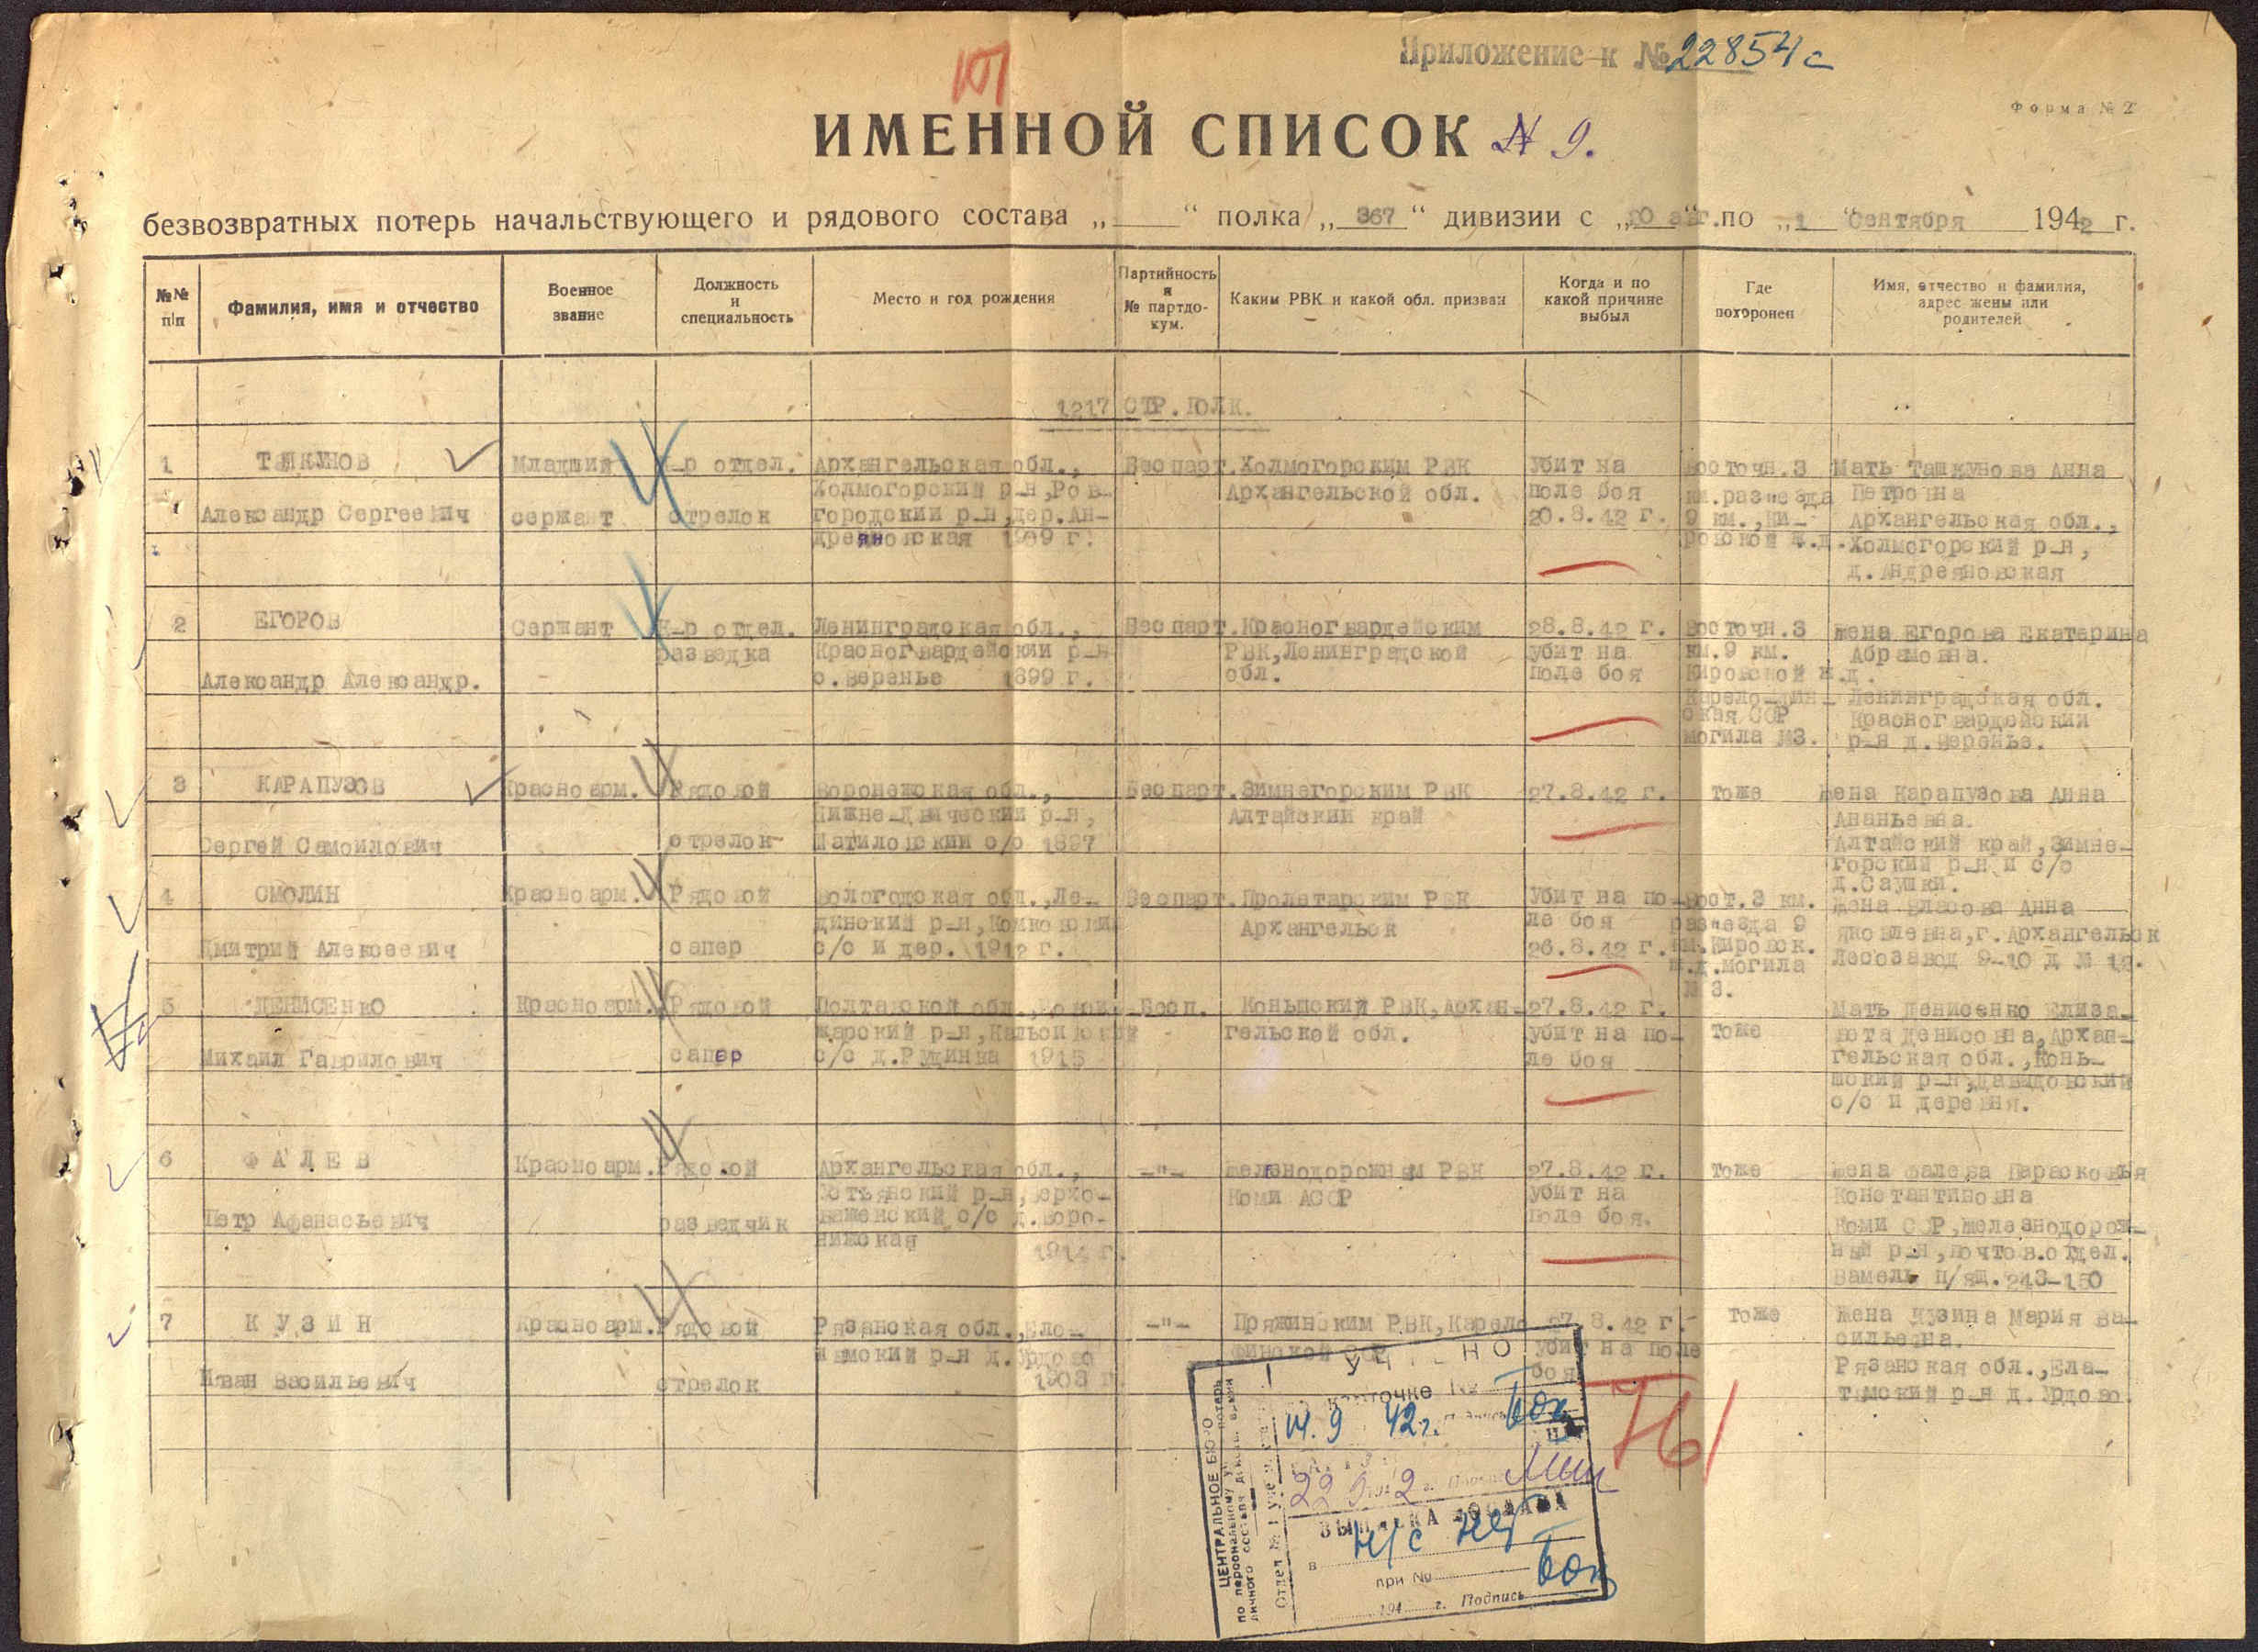 Приложение к № 22854с
Форма № 2
ИМЕННОЙ СПИСОК N 9.
безвозвратных потерь начальствующего и рядового состава „ “ полка „ 367 “ дивизии с по „ 1 “ сентября 1942 г.
№№ п/п
Фамилия, имя и отчество
Военное звание
Должность и специальность
Место и год рождения
Партийность и № партдокум.
Каким РВК и какой обл. призван
Когда и по какой причине выбыл
Где похоронен
Имя, отчество и фамилия, адрес жены или родителей
1217 СТР.ПОЛК.
1
Александр Сергеевич
Младший
сержант
к-р отдел.
стрелок
Архангельская обл.,
Холмогорский р-н,
городский р-н,дер.Ан-
дреяновская 1909 г.
Беспарт.
Холмогорским РВК
Архангельской обл.
Убит на
поле боя
20.8.42 г.
восточн.3
км.разъезда
9 км.,Ки-
ровской ж.д.
Мать Ташкунова Анна
Петровна
Архангельская обл.,
Холмогорский р-н,
д.Андреяновская
2
ЕГОРОВ
Александр Александр.
Сержант
к-р отдел.
разведка
Ленинградская обл.,
Красногвардейский р-н
с.Веренье 1899 г.
Беспарт.
Красногвардейским
РВК,Ленинградской
обл.
28.8.42 г.
убит на
поле боя
восточн.3
км.9 км.
Кировской ж.д.
Карело-фин-
ская ССР
могила №3.
жена Егорова Екатерина
Абрамовна.
Ленинградская обл.
Красногвардейский
р-н д.Веренье.
3
КАРАПУЗОВ
Сергей Самойлович
Красноарм.
Рядовой
стрелок
Воронежская обл.,
р-н,
с/с 1897
Беспарт.
Змеиногорским РВК
Алтайский край
27.8.42 г.
тоже
жена Карапузова Анна
Ананьевна.
Алтайский край,
горский р-н и с/с
д.Саушки.
4
СМОЛИН
Дмитрий Алексеевич
Красноарм.
Рядовой
сапер
Вологодская обл.,
р-н,
с/с и дер. 1912 г.
Беспарт.
Пролетарским РВК
Архангельск
Убит на по-
ле боя
26.8.42 г.
вост.3 км.
разъезда 9
км.Кировск.
ж.д.могила
№ 3.
жена Власова Анна
Яковлевна,г.Архангельск
Лесозавод 9-10 д № 12.
5
ДЕНИСЕНКО
Михаил Гаврилович
Красноарм.
Рядовой
сапер
Полтавской обл.,
р-н,
с/с д.Рудинка 1915
Бесп.
Коньшский РВК,Архан-
гельской обл.
27.8.42 г.
убит на по-
ле боя
тоже
Мать Денисенко Елиза-
вета Денисовна,Архан-
гельская обл.,Конь-
шский р-н,Давыдовский
с/с и деревня.
6
ФАЛЕВ
Петр Афанасьевич
Красноарм.
Рядовой
разведчик
Архангельская обл.,
Устьянский р-н,Верхо-
с/с д.Воро-
нижская 1914 г.
-"-
Железнодорожным РВК
Коми АССР
27.8.42 г.
убит на
поле боя.
тоже
жена Фалева Парасковья
Константиновна
Коми ССР,железнодорож-
ный р-н,почтов.отдел.
п/ящ.243-150
7
КУЗИН
Иван Васильевич
Красноарм.
Рядовой
стрелок
Рязанская обл.,Ела-
тьмский р-н д.Урдово
1903 г.
-"-
Пряжинским РВК,Карело
финской ССР
27.8.42 г.
убит на поле
боя
тоже
жена Кузина Мария Ва-
сильевна.
Рязанская обл.,Ела-
тьмский р-н д.Урдово.
ЦЕНТРАЛЬНОЕ БЮРО
по персональному учету потерь
личного состава действ. армии
УЧТЕНО
по карточке №
14.9 42г.
22 9 1942 г.
ВЫПИСКА ПОСЛАНА
в н/с
при №
194 г. Подпись